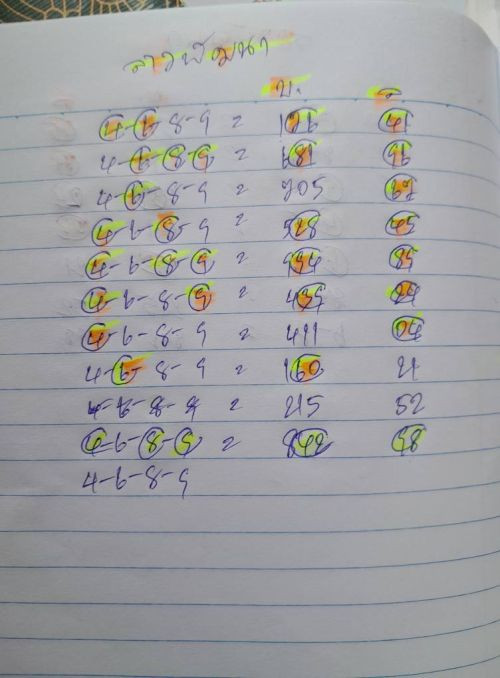 ลาวพัฒนา
บ. ล.
4-6-8-9 = 126 41
4-6-8-9 = 681 96
4-6-8-9 = 705 67
4-6-8-9 = 528 45
4-6-8-9 = 994 85
4-6-8-9 = 439
4-6-8-9 = 411 04
4-6-8-9 = 160 21
4-6-8-9 = 215 52
4-6-8-9 = 842 98
4-6-8-9